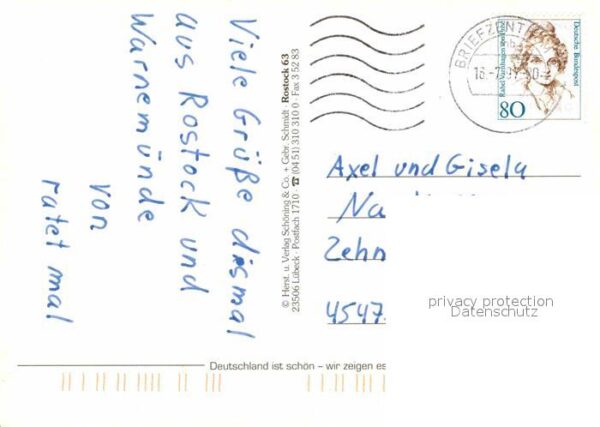 Viele Grüße dismal
aus Rostock und
Warnemünde
von
ratet mal
© Herst. u. Verlag Schöning & Co. + Gebr. Schmidt · Rostock 63
23506 Lübeck · Postfach 1710 · ☎ (04 51) 310 310 0 · Fax 3 52 83
BRIEFZENT
Deutsche Bundespost
Rahel Varnhagen von Ense
80
Axel und Gisela
Na
Zehn
4547
privacy protection
Datenschutz
Deutschland ist schön – wir zeigen es